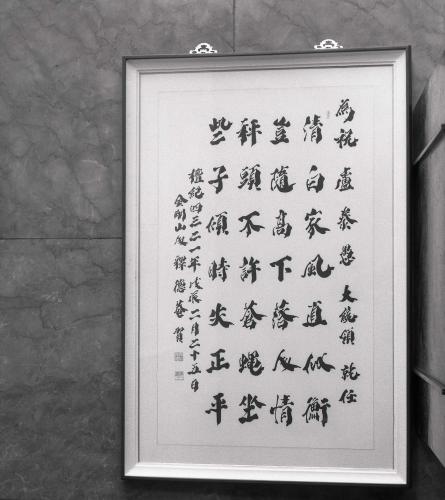 為祝盧泰愚大統領就任
清白家風直似衡
豈隨高下落人情
秤頭不許蒼蠅坐
些子傾時失正平
檀紀四三二一年戊辰二月二十五日
金剛山人釋德菴賀